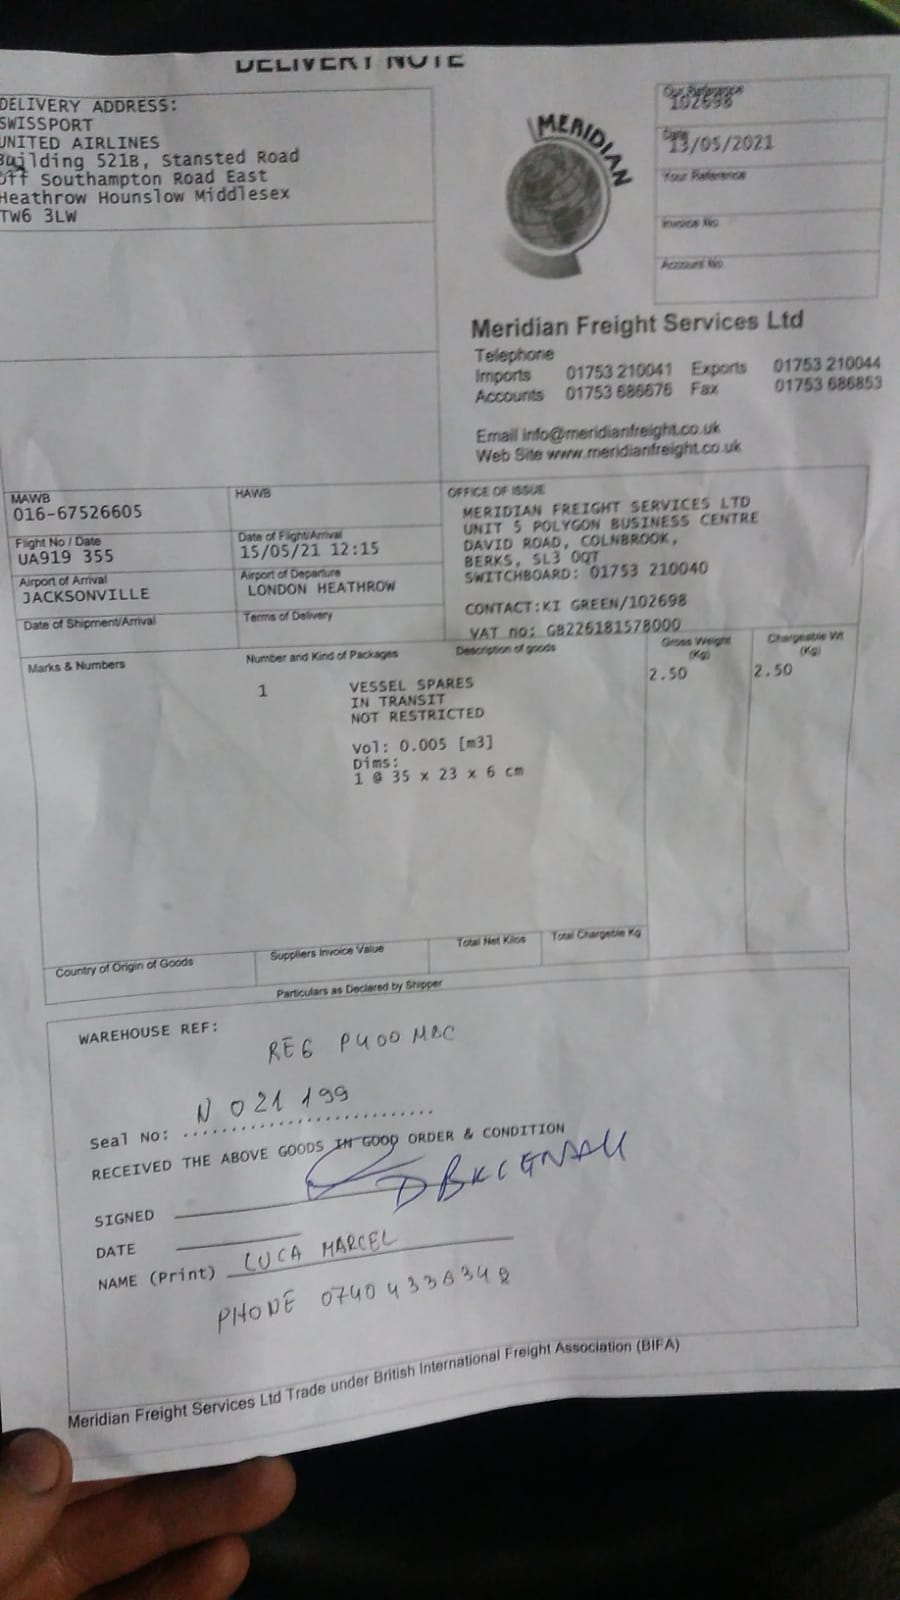 DELIVERY NOTE
DELIVERY ADDRESS:
SWISSPORT
UNITED AIRLINES
Building 521B, Stansted Road
Off Southampton Road East
Heathrow Hounslow Middlesex
TW6 3LW
MERIDIAN
Our Reference
102698
Date
13/05/2021
Your Reference
Invoice No
Account No
Meridian Freight Services Ltd
Telephone
Imports 01753 210041 Exports 01753 210044
Accounts 01753 686676 Fax 01753 686853
Email info@meridianfreight.co.uk
Web Site www.meridianfreight.co.uk
MAWB
016-67526605
HAWB
Flight No / Date
UA919 355
Date of Flight/Arrival
15/05/21 12:15
Airport of Arrival
JACKSONVILLE
Airport of Departure
LONDON HEATHROW
Date of Shipment/Arrival
Terms of Delivery
OFFICE OF ISSUE
MERIDIAN FREIGHT SERVICES LTD
UNIT 5 POLYGON BUSINESS CENTRE
DAVID ROAD, COLNBROOK,
BERKS, SL3 0QT
SWITCHBOARD: 01753 210040
CONTACT:KI GREEN/102698
VAT no: GB226181578000
Marks & Numbers
Number and Kind of Packages
Description of goods
Gross Weight
(Kg)
Chargeable Wt
(Kg)
1
VESSEL SPARES
IN TRANSIT
NOT RESTRICTED
2.50
2.50
Vol: 0.005 [m3]
Dims:
1 @ 35 x 23 x 6 cm
Country of Origin of Goods
Suppliers Invoice Value
Total Net Kilos
Total Chargeable Kg
Particulars as Declared by Shipper
WAREHOUSE REF:
REG P400 MBC
Seal No: N 021 199
RECEIVED THE ABOVE GOODS IN GOOD ORDER & CONDITION
SIGNED
DATE
NAME (Print) LUCA MARCEL
PHONE
Meridian Freight Services Ltd Trade under British International Freight Association (BIFA)